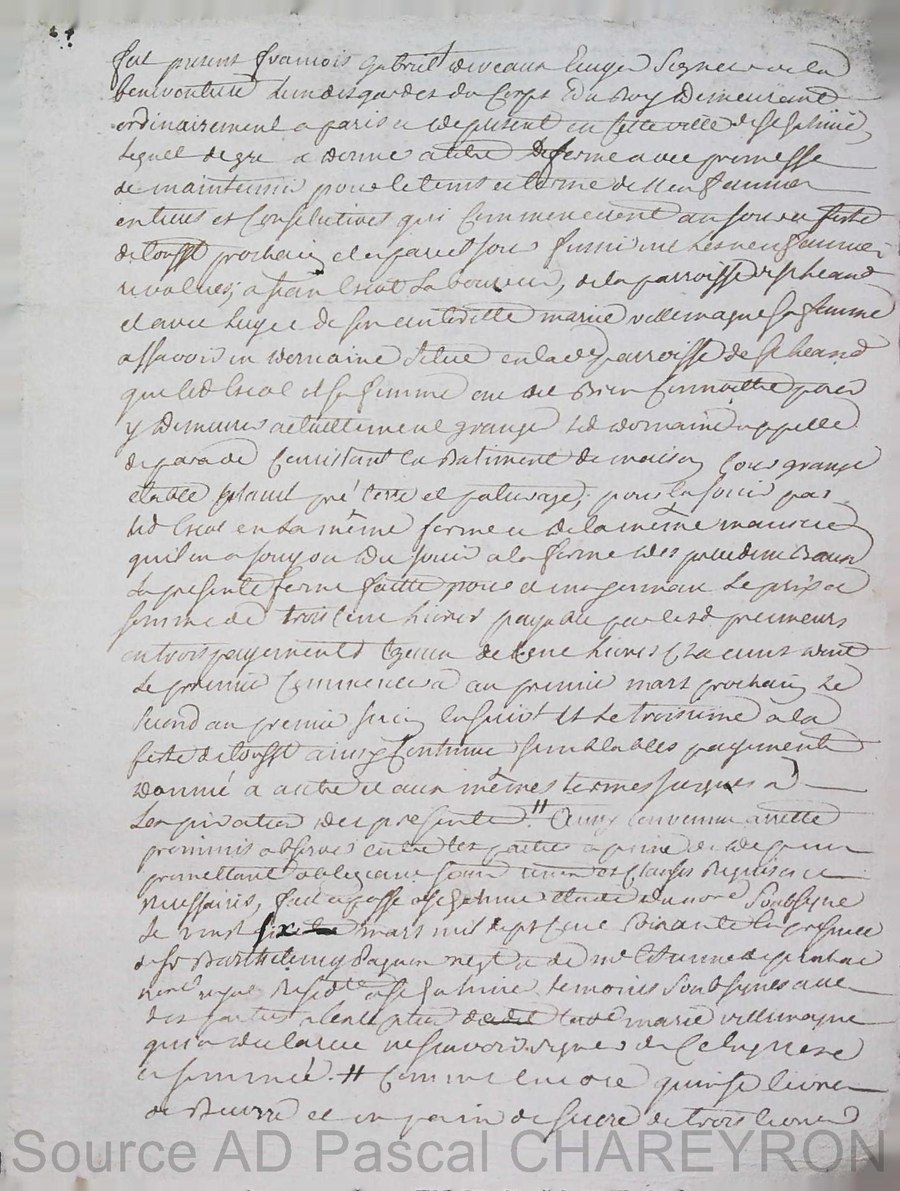 fut present francois gabriel deveaux Ecuyer Seigneur de la
bonvouture l'un des gardes du Corps du Roy demeurant
ordinairement a paris et de present en cette ville de St Etienne,
Lequel de gre a donne a titre De ferme avec promesse
de maintenir pour le tems et terme de neuf années
entieres et Consecutives qui Commenceront au jour et feste
de toussts prochain et a pareil jour finiront Les neuf années
revolues, a jean Escot Laboureur, de la parroisse de St heand
et avec luy et de son autorité marie villemagne sa femme
assavoir un domaine situé en lad parroisse de St heand
que led Escot et sa femme ont dit Bien Connoitre pour
y demeurer actuellement granger led domaine appellé
de Consistant en Batiment de maison Cour grange
etable jardin pré terre et paturage, pour en jouir par
led Escot en La même forme et de la même maniere
qu'il en a jouy ou du jouir a la forme des precedens Baux
La presente ferme faitte pour et moyennant Le prix et
somme de trois Cent Livres payable par lesd preneurs
en trois payements egaux de Cent Livres Chacuns dont
Le premier Commencera au premier mars prochain Le
second au premier juin ensuivt et Le troisieme a la
feste de toussts ainsy Continuer semblables payements
d'année a autre et aux mêmes termes jusques a
L'expiration des presentes # Ainsy convenu arretté
promis observer entre les parties a peine de depens
promettant obligeant soum renon et Clauses Requises et
necessaires, fait et passé a St Etienne Etude du nore Soubsigné
Le vingt six mars mil sept Cent Soixante En presence
de Sr Barthelemy negt et de me Etienne
Residts a St Etienne temoins Soubsignés avec
des parties a l'exception de lad marie villemagne
qui a declaré ne sçavoir signer de Ce Enquise
et sommée. # Comme encore quinse livres
de Beurre et un pain de sucre de trois livres
Source AD Pascal CHAREYRON